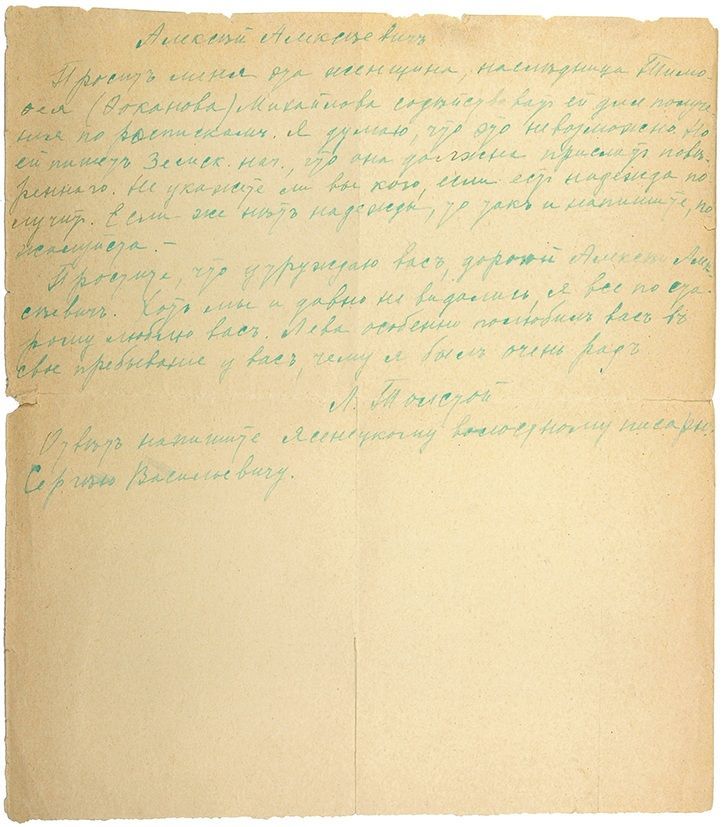 Алексѣй Алексѣевичъ
Проситъ меня эта женщина, наслѣдница Тимо-
фея (Фоканова) Михайлова содѣйствовать ей для получе
нія по роспискамъ. Я думаю, что это невозможно. Но
ей пишетъ Земск. нач., что она должна прислать повѣ-
реннаго. Не укажете ли вы кого, если есть надежда по
лучить. Если же нѣтъ надежды, то такъ и напишите, по
жалуйста. —
Простите, что утруждаю васъ, дорогой Алексѣй Але
ксѣевичъ. Хоть мы и давно не видались, я все по ста-
рому люблю васъ. Лева особенно полюбилъ васъ въ
свое пребываніе у васъ, чему я былъ очень радъ
Л. Толстой
Отвѣтъ напишите Ясенецкому волостному писарю.
Сергѣю Васильевичу.